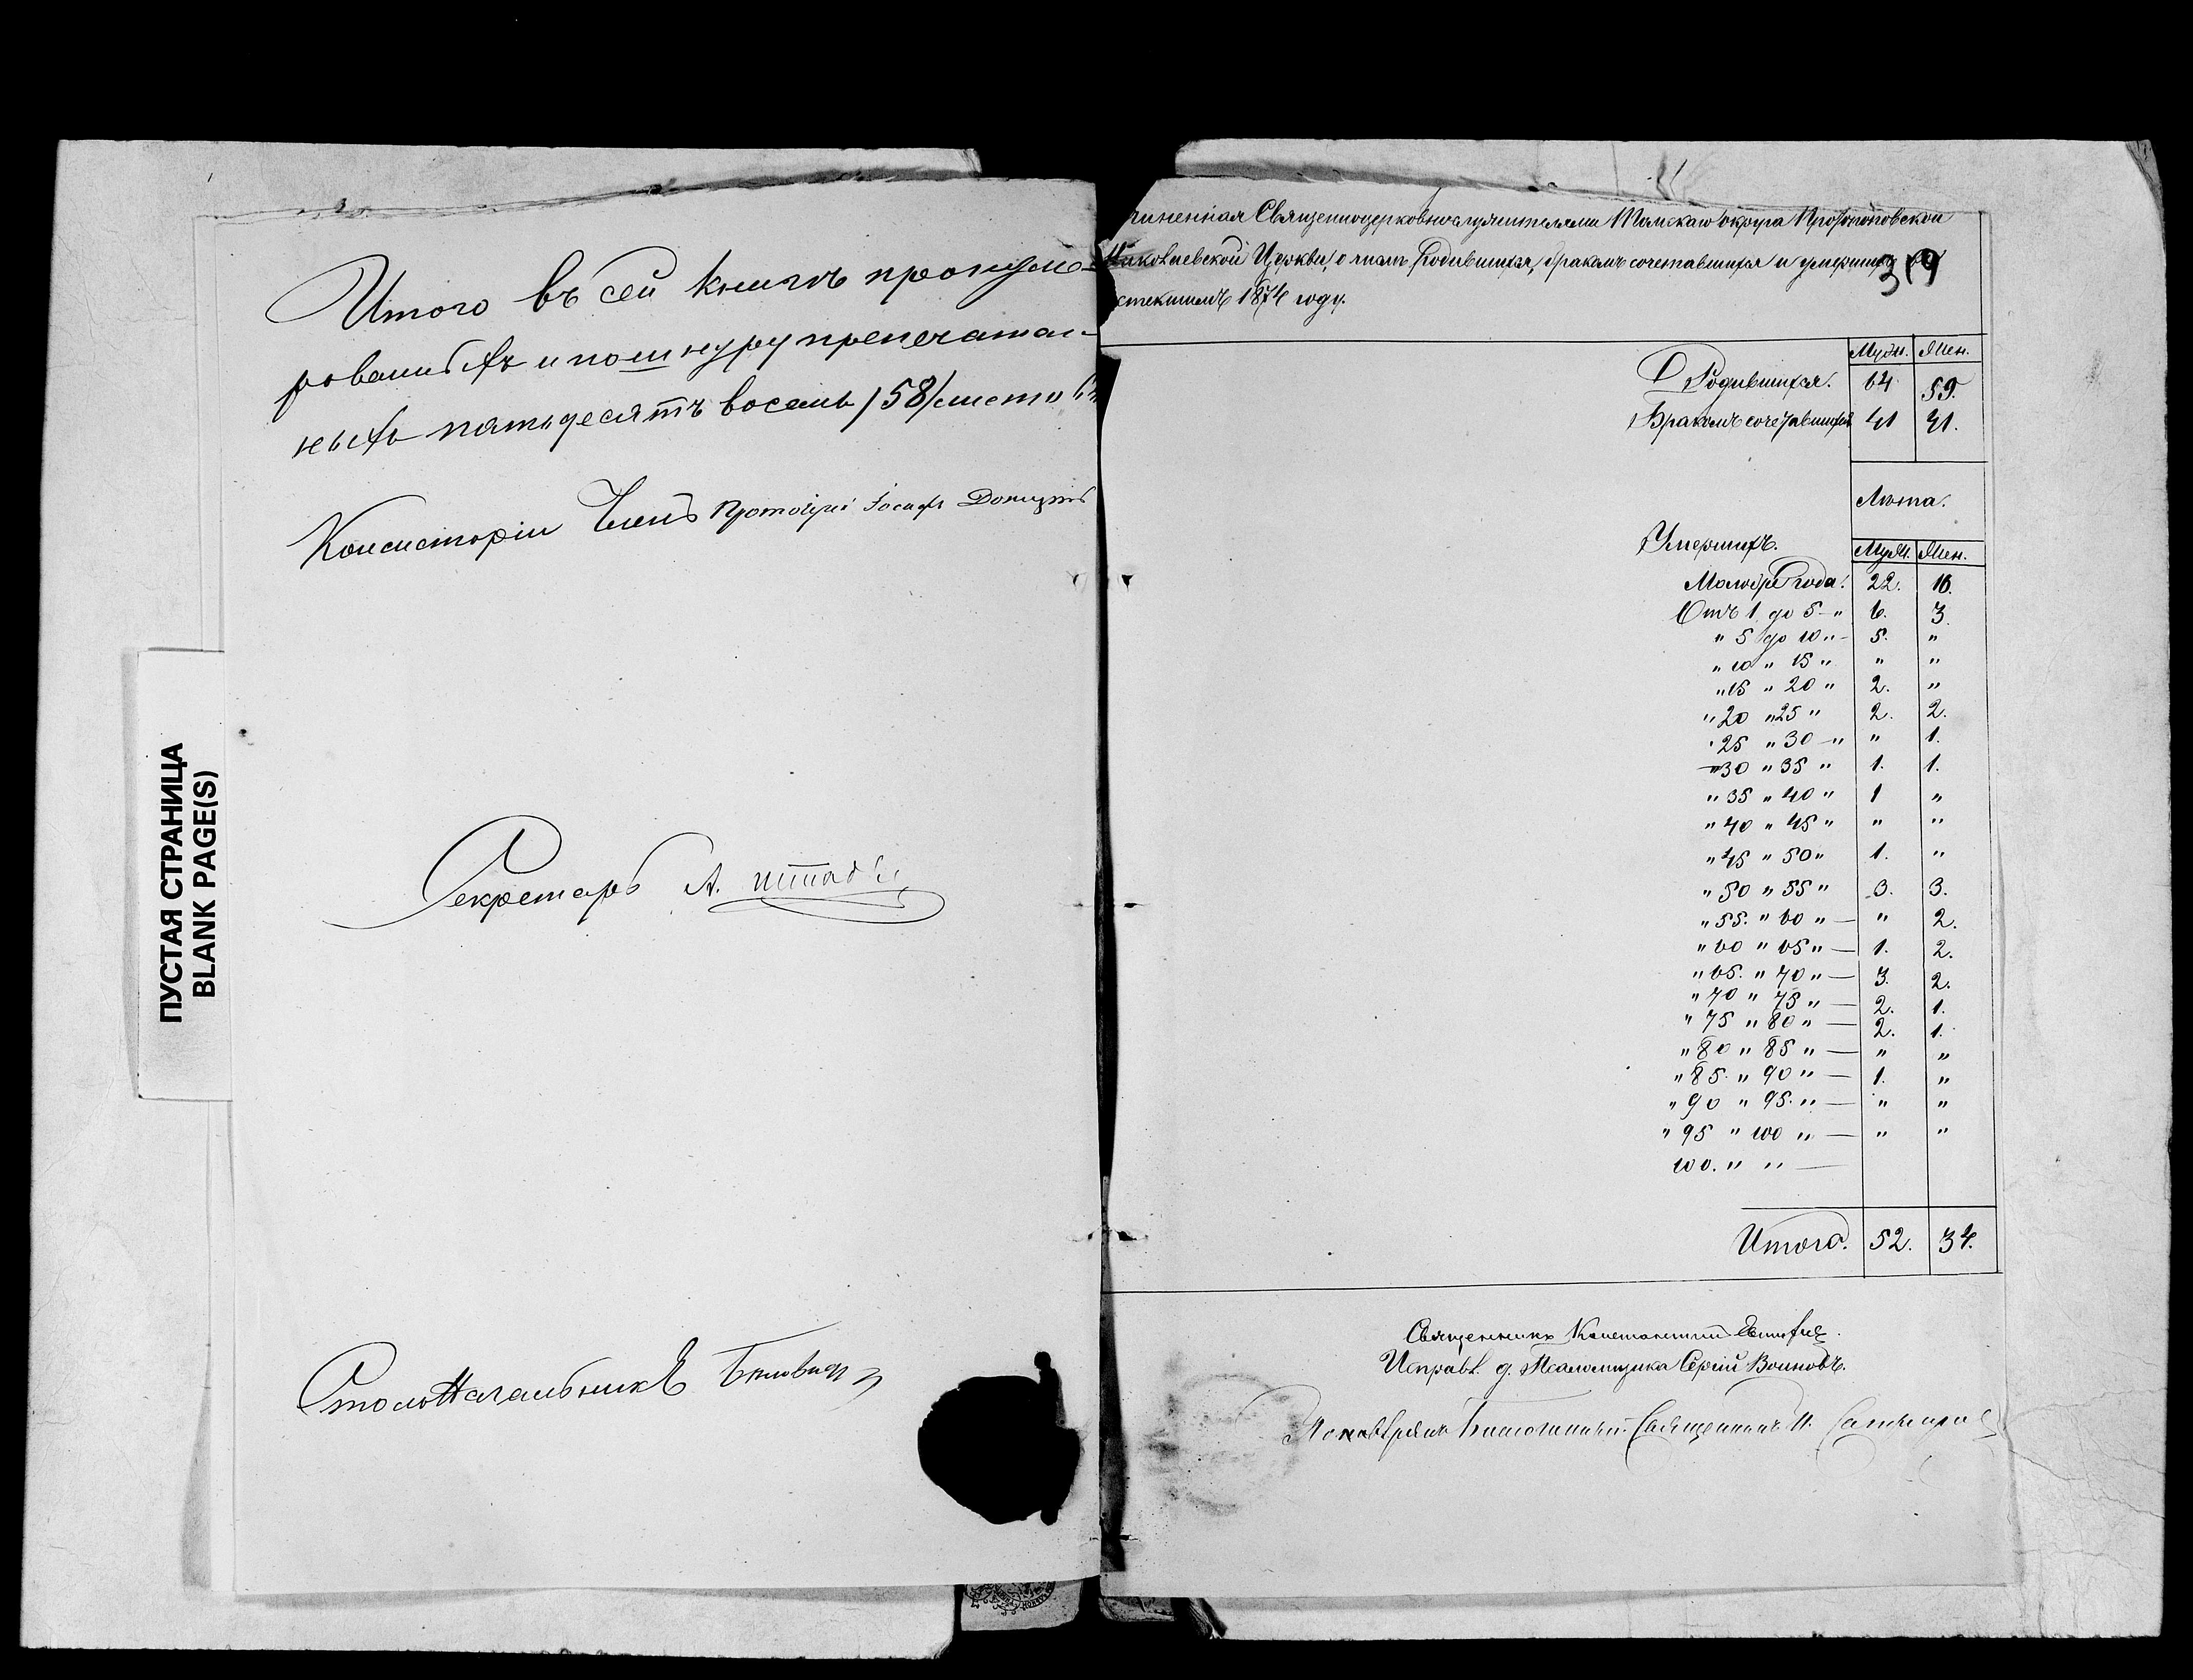 Итого въ сей книгѣ пронуме-
рованныхъ и по шнуру препечатан-
ныхъ пятьдесятъ восемь /58/ листовъ
Консисторіи Членъ Протоіерей Іоасафъ
Секретарь А.
Столоначальникъ
ПУСТАЯ СТРАНИЦА
BLANK PAGE(S)
чиненная Священноцерковнослужителями Томскаго округа Протопоповской
Николаевской Церкви, о числѣ Родившихся, бракомъ сочетавшихся и умершихъ въ
истекшемъ 1874 году.
319
Муж. Жен.
Родившихся. 64 59.
Бракомъ сочетавшихся 41 41.
Лѣта.
Умершихъ. Муж. Жен.
Моложе года. 22. 16.
Отъ 1 до 5 - „ 6. 3.
„ 5 до 10 „ - 5. „
„ 10 „ 15 „ „ „
„ 15 „ 20 „ 2. „
„ 20 „ 25 „ 2. 2.
„ 25 „ 30 - „ „ 1.
„ 30 „ 35 „ 1. 1.
„ 35 „ 40 „ 1 „
„ 40 „ 45 „ „ „
„ 45 „ 50 „ 1. „
„ 50 „ 55 „ 3. 3.
„ 55. „ 60 „ — „ 2.
„ 60 „ 65 „ — 1. 2.
„ 65. „ 70 „ — 3. 2.
„ 70 „ 75 „ — 2. 1.
„ 75 „ 80 „ — 2. 1.
„ 80 „ 85 „ — „ „
„ 85. „ 90 „ — 1. „
„ 90 „ 95. „ — „ „
„ 95 „ 100 „ — „ „
100. „ „ —
Итого. 52. 34.
Священникъ Константинъ
Исправл. д. Псаломщика Сергій Воиновъ.
Благочинный Священникъ